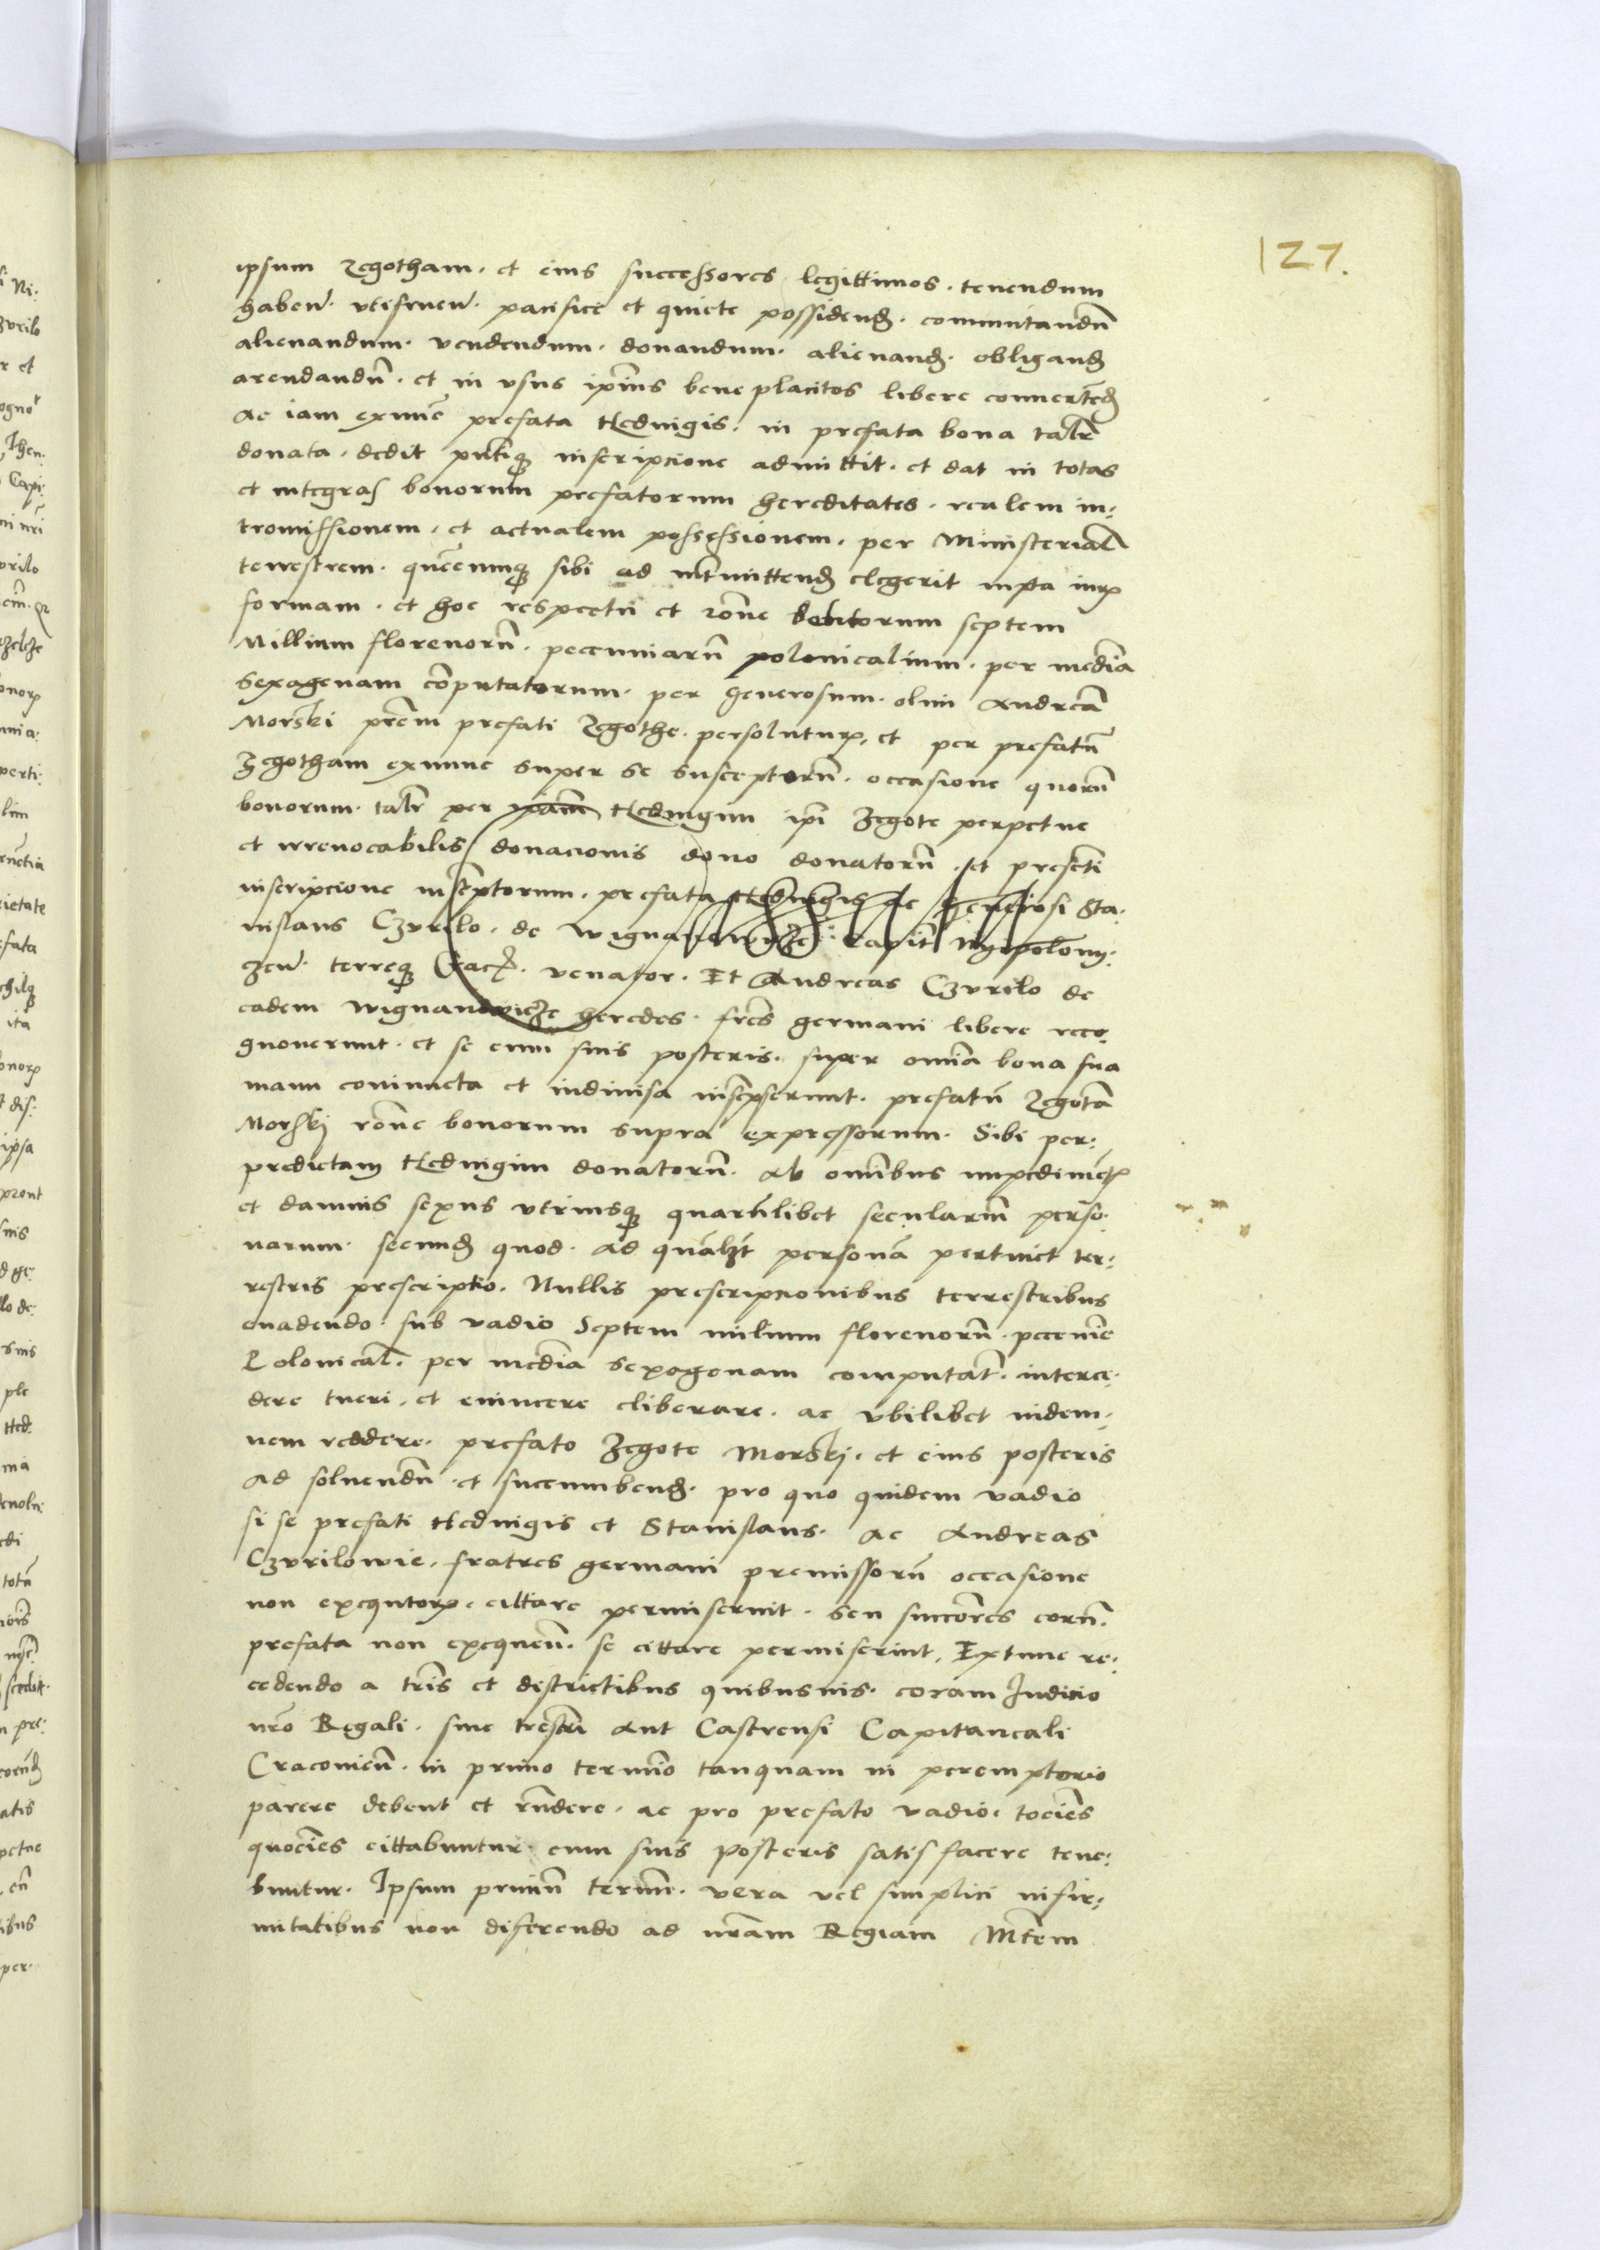 127.
ipsum Zegotham. et eius successores legittimos. tenendum
haben. utifruen. pacifice et quiete possidend. commutandu
alienandum. vendendum. donandum. alienand. obligand
arendandu. et in usus ipsius bene placitos libere convertend
ac iam exnunc prefata Hedvigis. in prefata bona talr
donata. dedit pntiq inscripcione admittit. et dat in totas
et integras bonorum prefatorum hereditates. realem in:
tromissionem. et actualem possessionem. per Ministeriale
terrestrem. quecunq sibi ad intmittend elegerit iuxta iur
formam. et hoc respectu et rone septem
Millium florenoru. peccuniaru polonicalium. per media
sexagenam computatorum. per Generosum. olim Andrea
Morski prem prefati Zegothe. persolutur. et per prefatu
Zegotham exnunc super se susceptoru. occasione quoru
bonorum. talr per Hedvigim ipi Zegote perpetue
et irrevocabilis donacionis dono donatoru. et presenti
inscripcione inscriptorum. prefata Hedvigis ac Generosi Sta:
nislaus Czurilo. de Wignanowicze. Capit Nyepolomi:
zen. terreq Crac. venator. Et Andreas Czurilo de
eadem Wignanowicze heredes. fres germani libere reco
gnoverunt. et se cum suis posteris. super omia bona sua
manu coniuncta et indivisa inscripserunt. prefatu Zegota
Morskj rone bonorum supra expressorum. Sibi per:
predictam Hedvigim donatoru. Ab omibus impedimet
et damnis sexus utriusq quarulibet seculariu perso:
narum. secund quod. ad qualzt persona pertinet ter:
restris prescriptio. Nullis prescripcionibus terrestribus
evadendo. sub vadio Septem milium florenoru. peccunie
Polonical. per media sexogenam computat. interce:
dere tueri. et evincere eliberare. ac ubilibet indem:
nem reddere. prefato Zegote Morskj. et eius posteris
ad solvendu. et succumbend. pro quo quidem vadio
si se prefati Hedvigis et Stanislaus. ac Andreas
Czurilowie. fratres germani premissoru occasione
non exequtor. cittare permiserint. seu succores eoru.
prefata non exequen. se cittare permiserint. Extunc re:
cedendo a tris et districtibus quibusvis. coram Judicio
nro Regali. sive trestri aut Castrensi Capitaneali
Cracovien. in primo termio tanquam in peremptorio
parere debent et rndere. ac pro prefato vadio. tocies
quocies cittabuntur. cum suis posteris satisfacere tene:
buntur. Ipsum primu termi. vera vel simplici infir:
mitatibus non diferendo ad nram Regiam Mtem